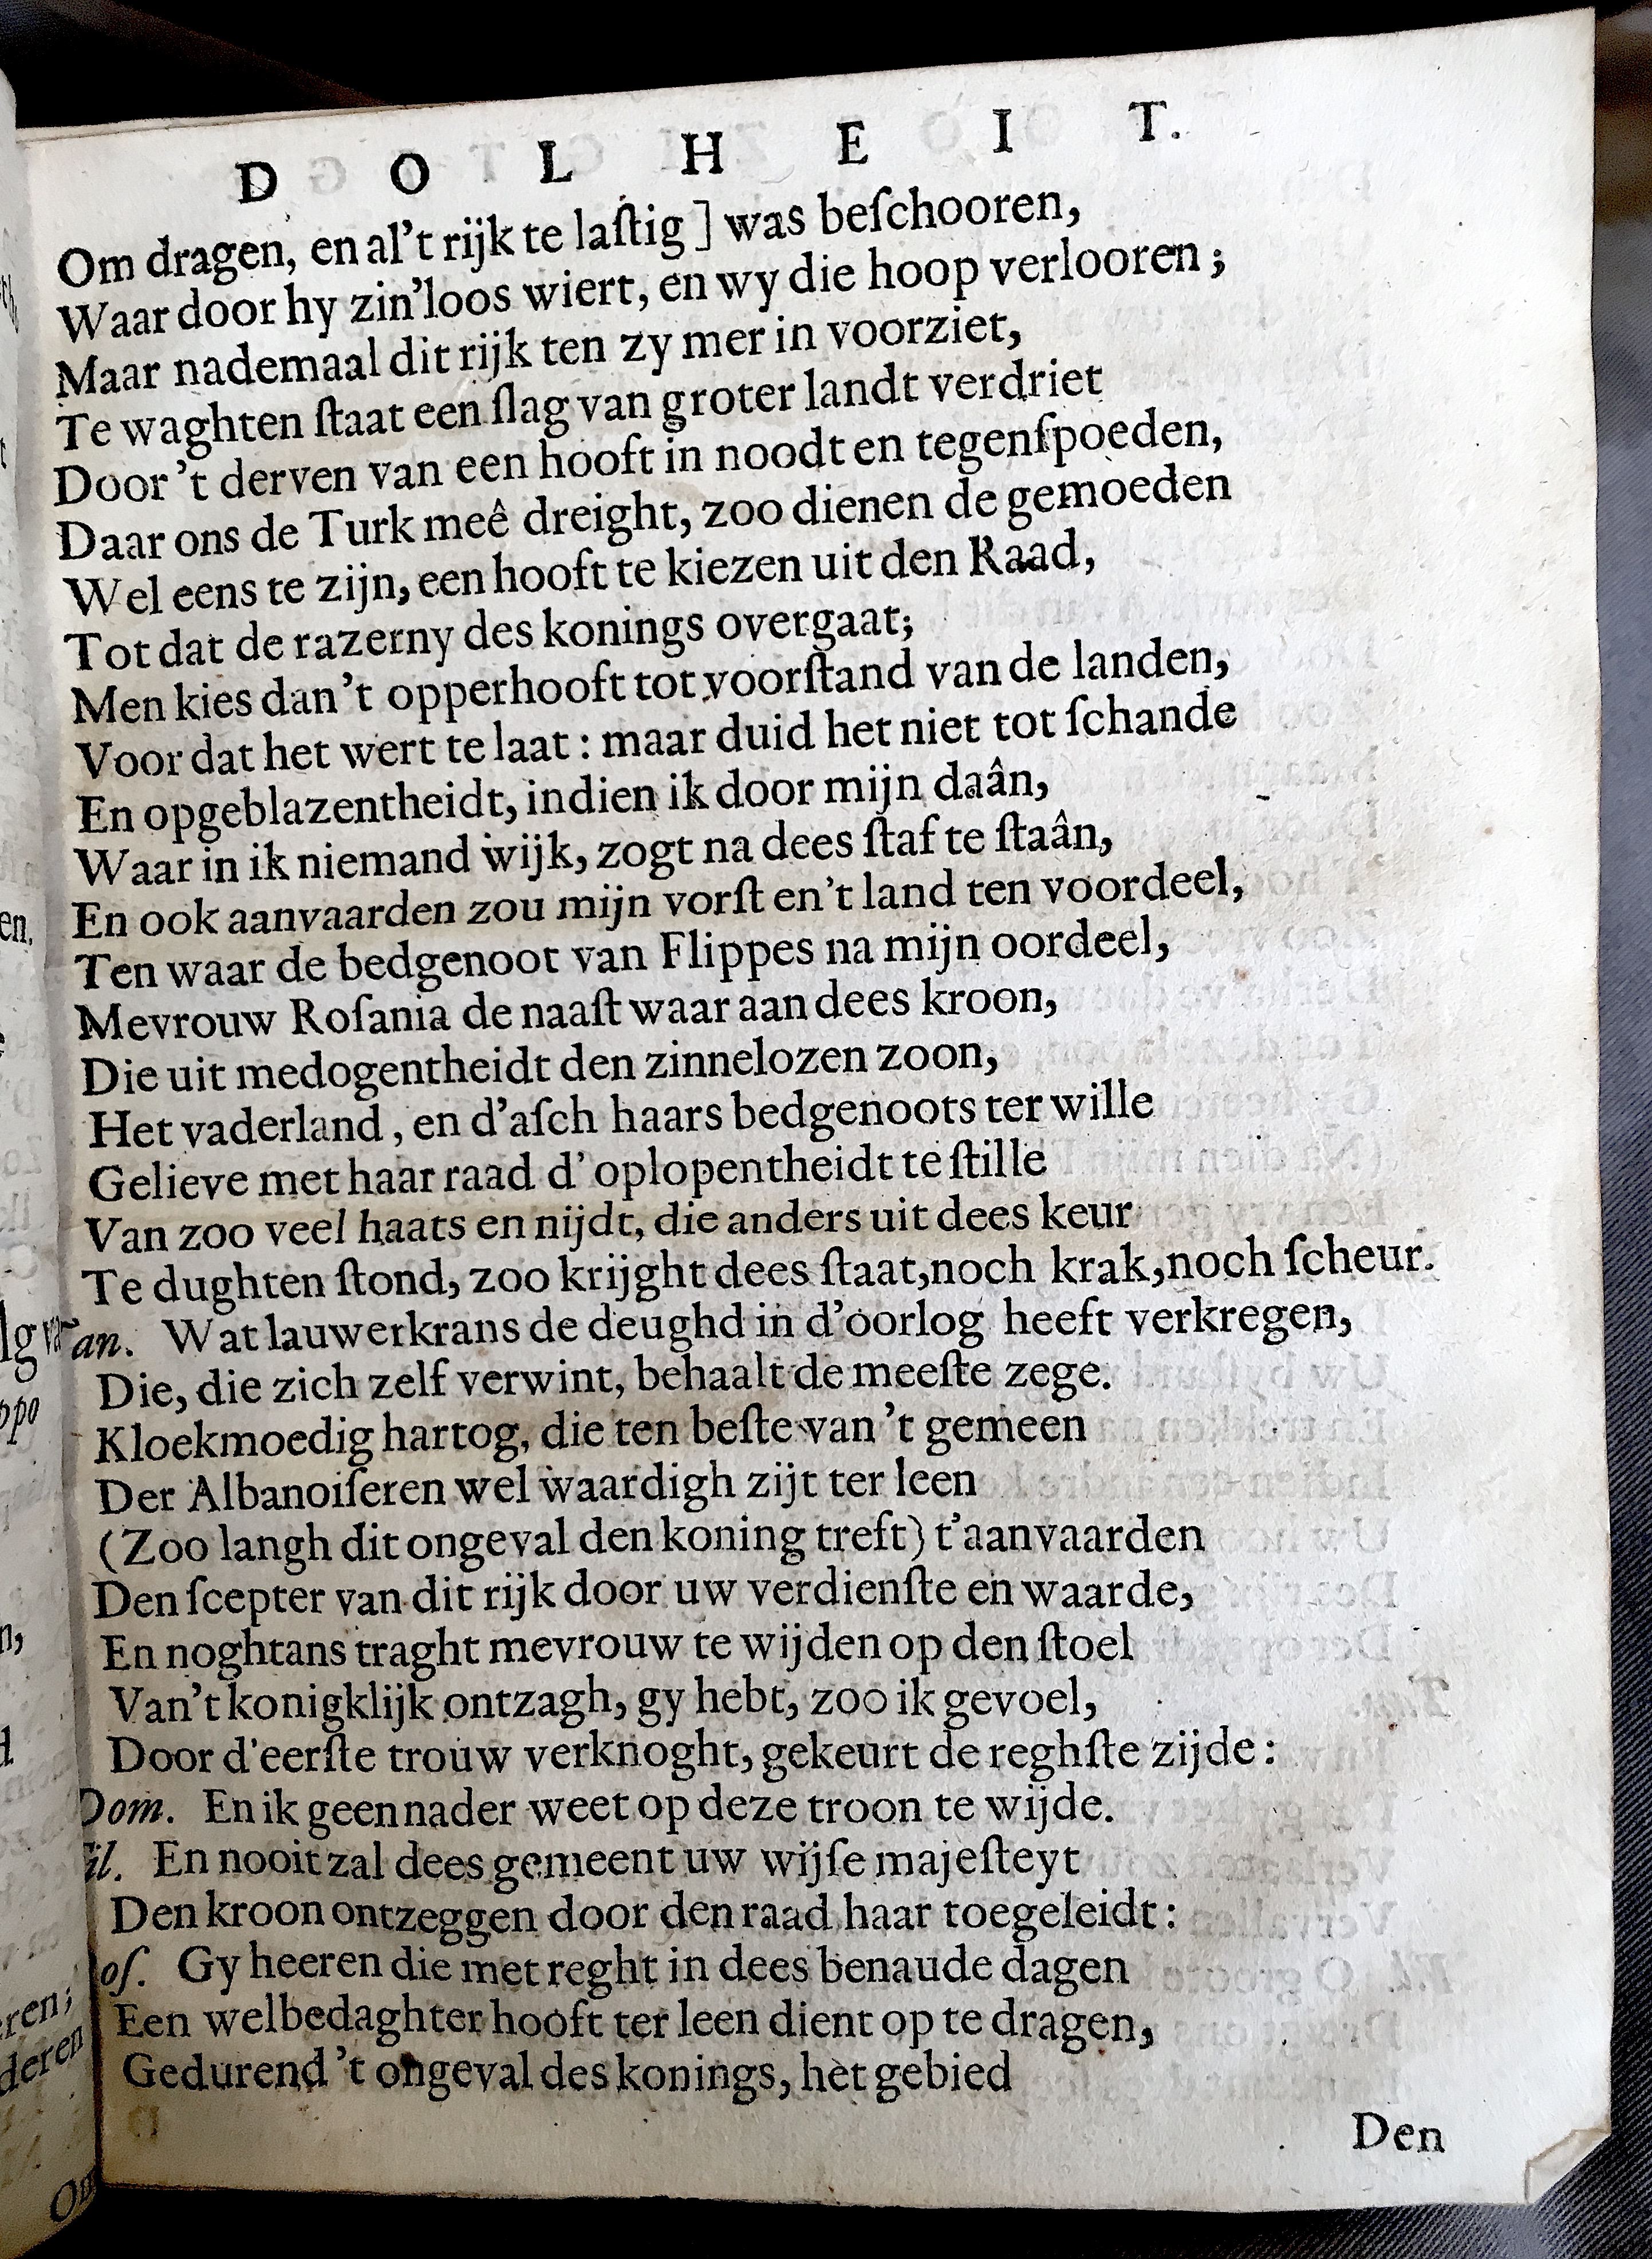 D O L H E I T.
Om dragen, en al't rijk te laſtig ] was beſchooren,
Waar door hy zin'loos wiert, en wy die hoop verlooren;
Maar nademaal dit rijk ten zy mer in voorziet,
Te waghten ſtaat een ſlag van groter landt verdriet
Door 't derven van een hooft in noodt en tegenſpoeden,
Daar ons de Turk meê dreight, zoo dienen de gemoeden
Wel eens te zijn, een hooft te kiezen uit den Raad,
Tot dat de razerny des konings overgaat;
Men kies dan't opperhooft tot voorſtand van de landen,
Voor dat het wert te laat: maar duid het niet tot ſchande
En opgeblazentheidt, indien ik door mijn daân,
Waar in ik niemand wijk, zogt na dees ſtaf te ſtaân,
En ook aanvaarden zou mijn vorſt en't land ten voordeel,
Ten waar de bedgenoot van Flippes na mijn oordeel,
Mevrouw Roſania de naaſt waar aan dees kroon,
Die uit medogentheidt den zinnelozen zoon,
Het vaderland, en d'aſch haars bedgenoots ter wille
Gelieve met haar raad d'oplopentheidt te ſtille
Van zoo veel haats en nijdt, die anders uit dees keur
Te dughten ſtond, zoo krijght dees ſtaat, noch krak, noch ſcheur.
an. Wat lauwerkrans de deughd in d'oorlog heeft verkregen,
Die, die zich zelf verwint, behaalt de meeſte zege.
Kloekmoedig hartog, die ten beſte van 't gemeen
Der Albanoiſeren wel waardigh zijt ter leen
(Zoo langh dit ongeval den koning treft) t'aanvaarden
Den ſcepter van dit rijk door uw verdienſte en waarde,
En noghtans traght mevrouw te wijden op den ſtoel
Van't konigklijk ontzagh, gy hebt, zoo ik gevoel,
Door d'eerſte trouw verknoght, gekeurt de reghſte zijde:
Dom. En ik geen nader weet op deze troon te wijde.
il. En nooit zal dees gemeent uw wijſe majeſteyt
Den kroon ontzeggen door den raad haar toegeleidt:
oſ. Gy heeren die met reght in dees benaude dagen
Een welbedaghter hooft ter leen dient op te dragen,
Gedurend 't ongeval des konings, het gebied
Den